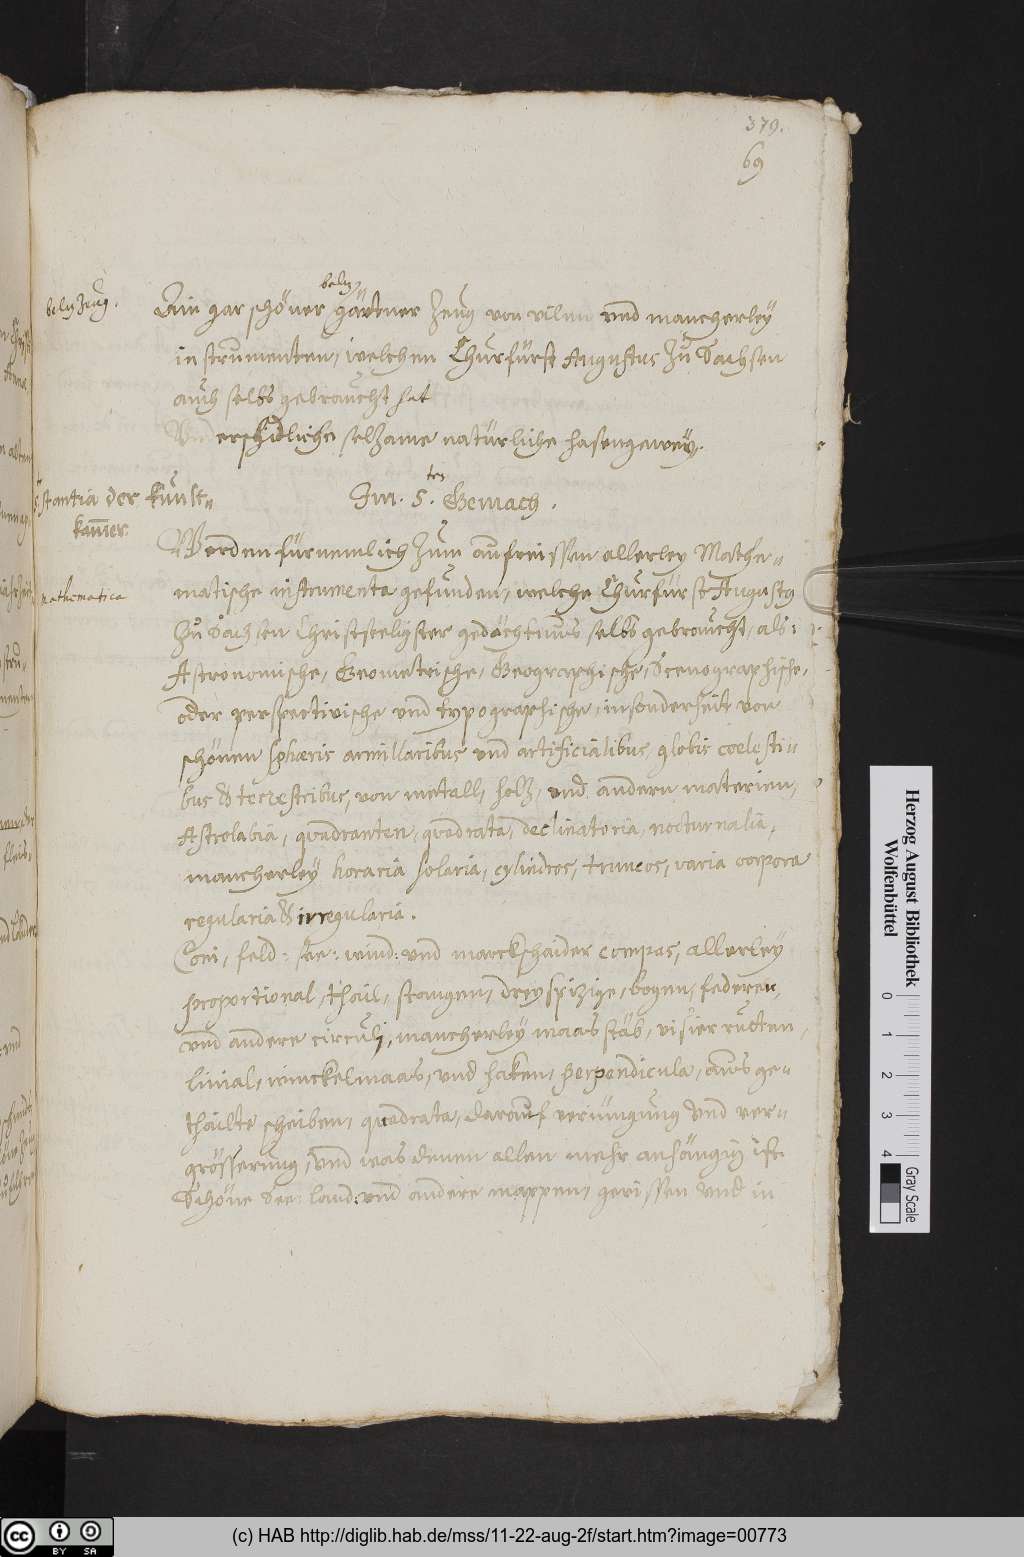 379.
69
beltz
beltz Zeug.
Ain gar schöner gärtner Zeug von vilen und mancherley
instrumenten, welchen Churfürst Augustus zu Sachsen
auch selbs gebraucht hat
Underschidliche selzame natürliche hasengeweÿ.
5. stantia der kunst-
kamer.
Im. 5.ten Gemach.
Werden fürnemlich zum aufreissen allerley Mathe-
mathematica
matische instrumenta gefunden, welche Churfürst Augustus
zu Sachsen Christseeligster gedächtnus selbs gebraucht, als:
Astronomische, Geometrische, Geographische, Scenographische,
oder perspectivische und typographische, insonderheit von
schönen sphæris armillaribus und artificialibus, globis coelesti-
bus & terrestribus, von metall, holz, und andern materien,
Astrolabia, quadranten, quadrata, declinatoria, nocturnalia,
mancherley horaria solaria, cylindros, truncos, varia corpora
regularia & irregularia.
Coni, feld: see: wind: und marckschaider compas, allerley
proportional, thail, stangen, dreyspizige, bogen, federen,
und andere circulj, mancherley maasstäb, visier rutten,
linial, winckelmaas, und haken, perpendicula, aus ge-
thailte scheiben, quadrata, darauf veriüngung und ver-
grösserung, und was denen allen mehr anhängig ist.
Schöne See: land: und andere mappen, gerissen und in
Herzog August Bibliothek
Wolfenbüttel
0 1 2 3 4
Gray Scale
cc BY SA
(c) HAB http://diglib.hab.de/mss/11-22-aug-2f/start.htm?image=00773